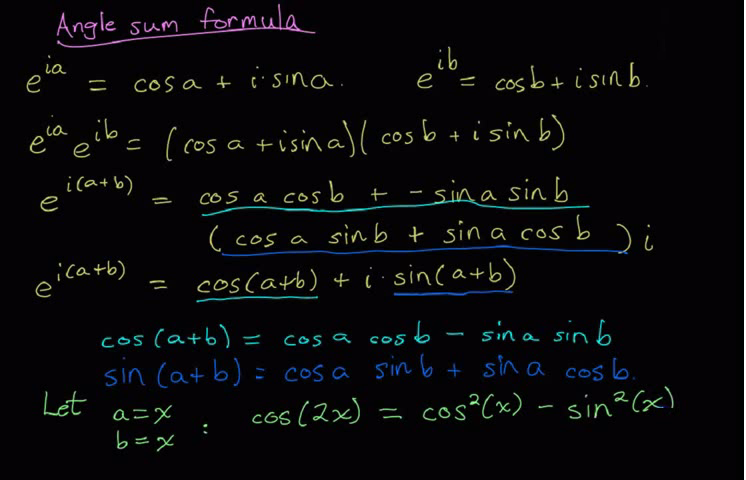 Angle sum formula
e^{ia} = cos a + i·sin a. e^{ib} = cos b + i sin b.
e^{ia} e^{ib} = (cos a + i sin a)(cos b + i sin b)
e^{i(a+b)} = cos a cos b + - sin a sin b
(cos a sin b + sin a cos b) i
e^{i(a+b)} = cos(a+b) + i·sin(a+b)
cos(a+b) = cos a cos b - sin a sin b
sin(a+b) = cos a sin b + sin a cos b.
Let a=x : cos(2x) = cos²(x) - sin²(x)
b=x